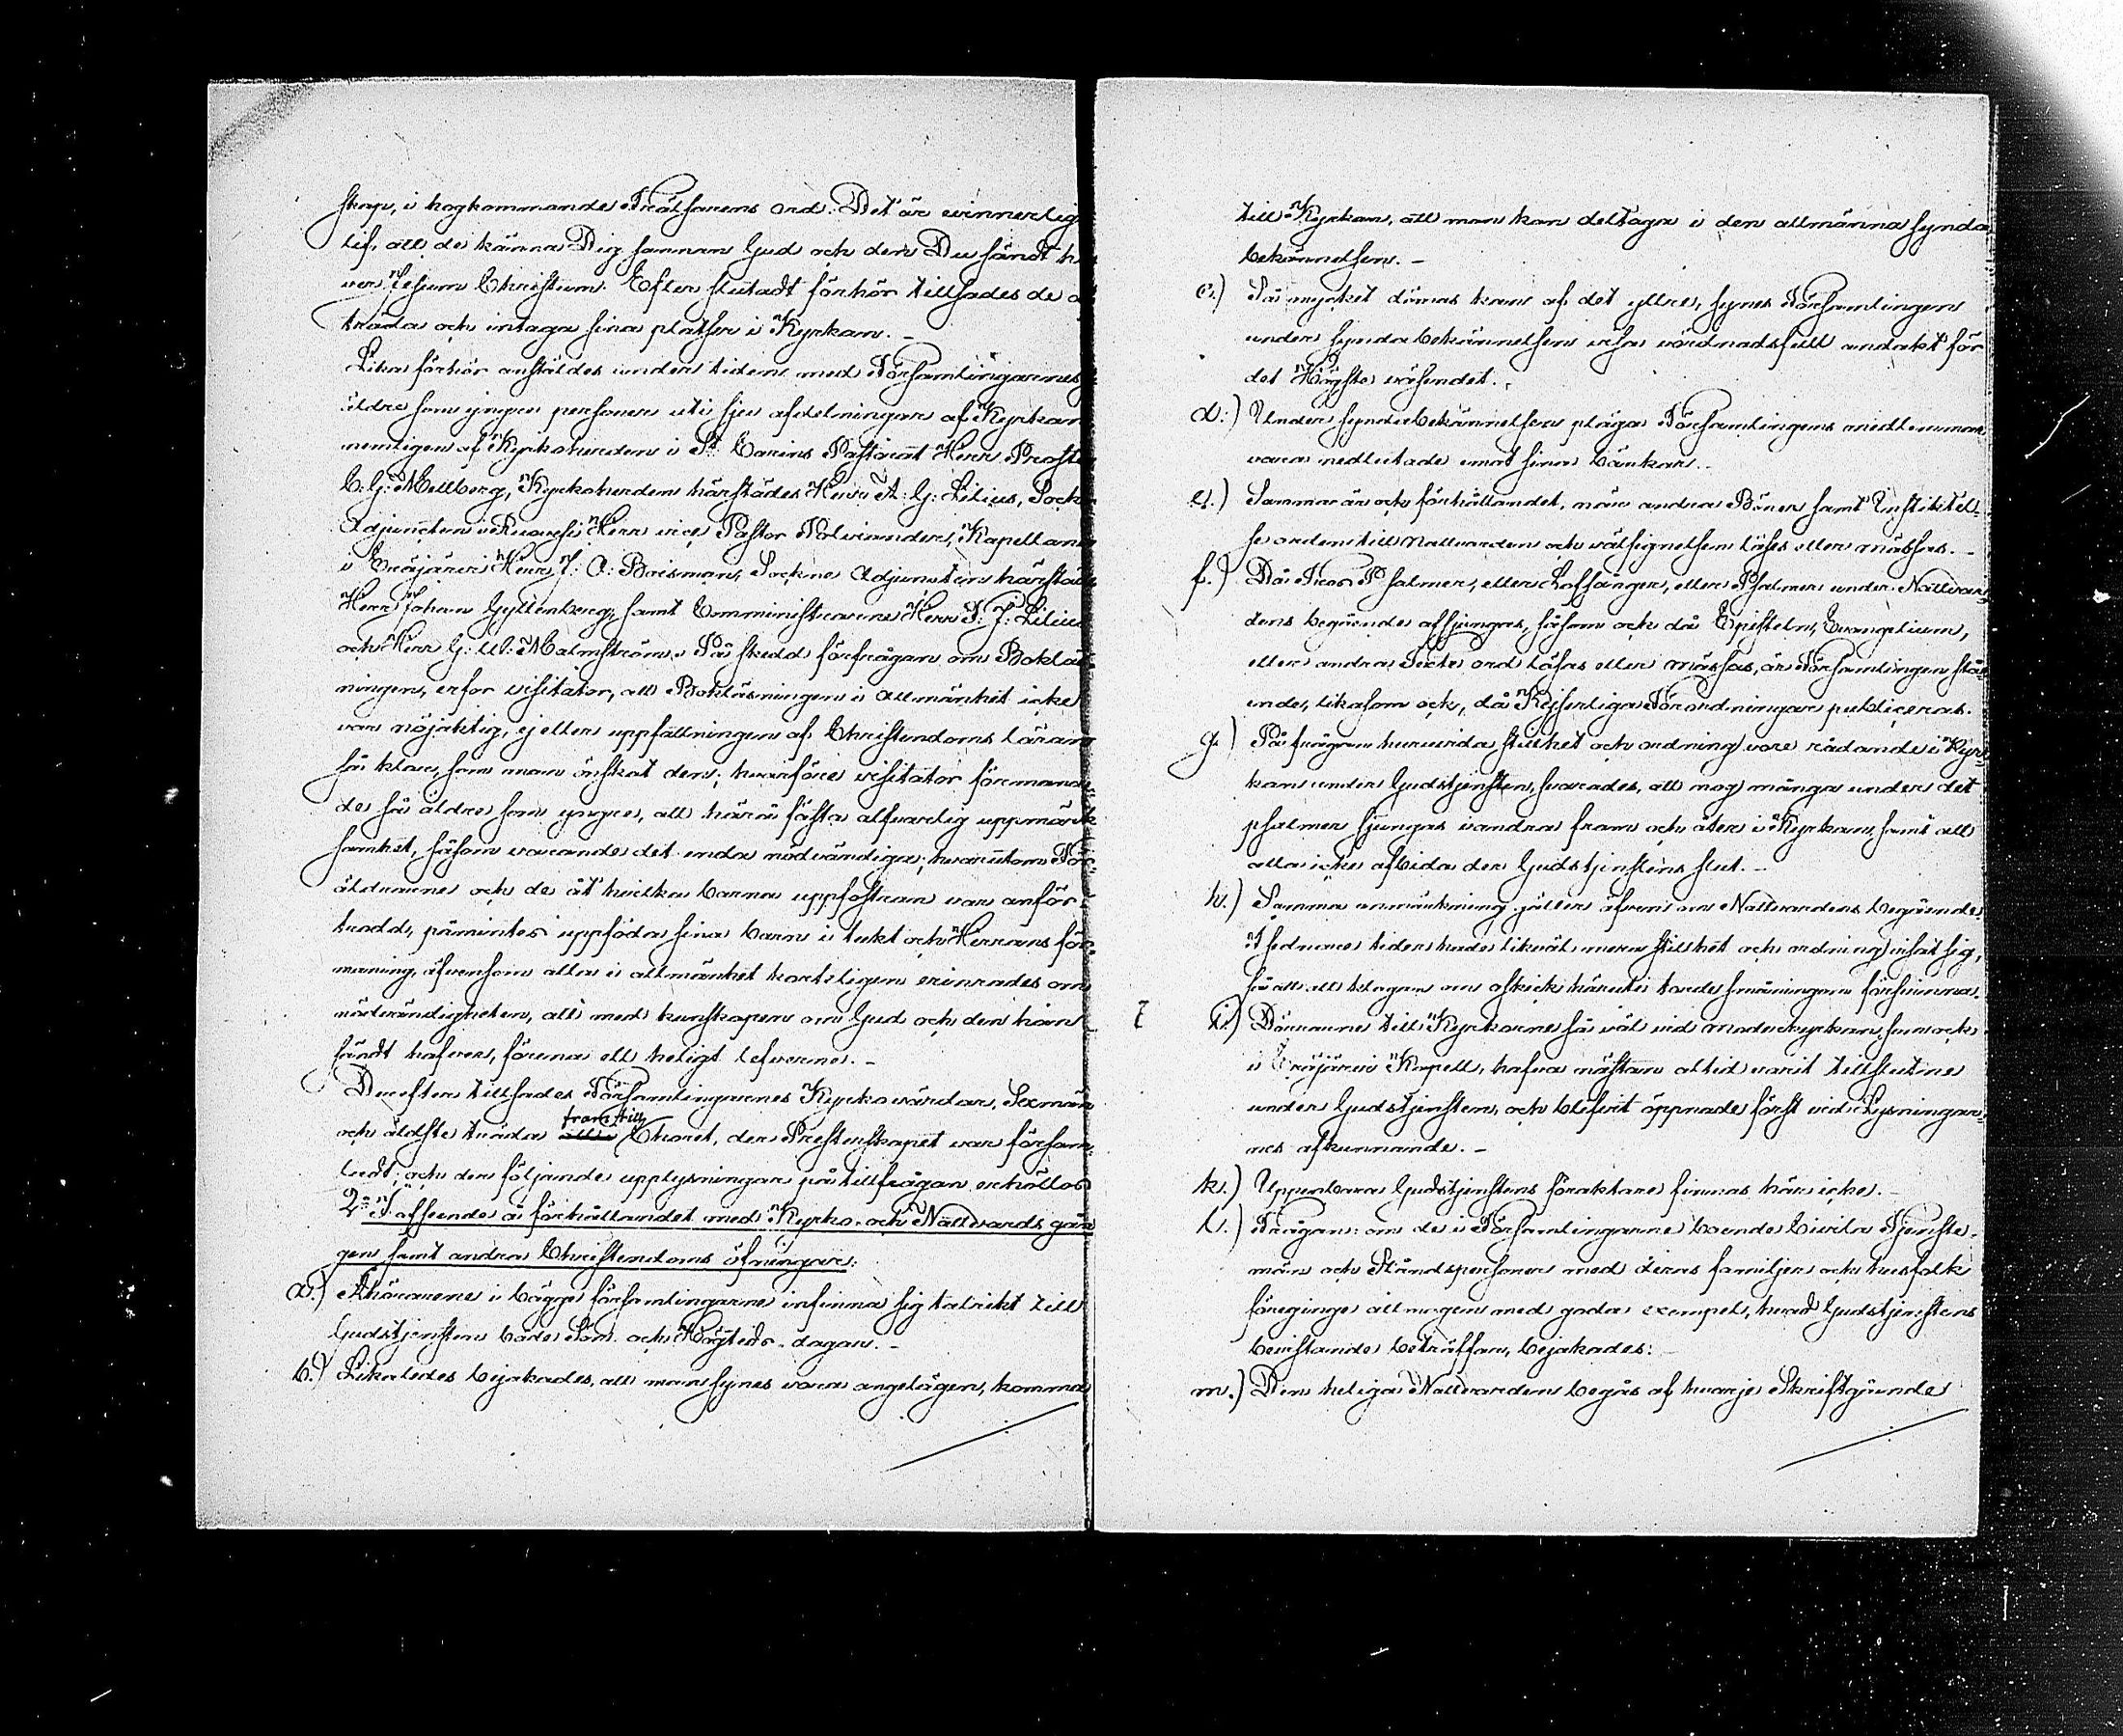 skap, i hogkommande Frälsarens ord: Det är evinnerlig
lif, att de känna Dig samman Gud och den Du sändt h
ver Jesum Christum. Efter slutadt förhör tillsades de a
träda och intaga sina platser i Kyrkan. –
Lika förhör anstäldes under tiden med Församlingarnes
äldre som yngre personer uti sju afdelningar af Kyrkan
nemligen af Kyrkoherden i St Carins Pastorat Herr Prosten
C: G: Mellberg, Kyrkoherden härstädes Herr A: G: Lilius, Sock
Adjuncten i Ruovesi Herr vice Pastor Polviander, Kapellan
i Eräjärvi Herr J: A: Boisman, Sockne Adjuncten härstäde
Herr Johan Gyllenberg, samt Comministrarne Herr F: J: Lilius
och Herr G: W: Malmström. På skedd förfrågan om Bokläs-
ningen, erfor visitator, att Bokläsningen i allmänhet icke
var nöjaktig, ej eller uppfattningen af Christendoms läran
så klar, som man önskat den; hvarföre visitator förmana-
de så äldre som yngre, att härå fästa alfvarlig uppmärk
samhet, såsom varande det enda nödvändiga; hvarutom För-
äldrarne och de åt hvilka barna uppfostran var anför-
trodd, påmintes uppföda sina barn i tukt och Herrans för-
maning, äfvensom alla i allmänhet korteligen erinrades om
nödvändigheten, att med kunskapen om Gud och den han
sändt hafver, förena ett heligt lefverne. –
Derefter tillsades Församlingarnes Kyrkovärdar, Sexmän
fram till
och äldste träda Choret, der Presterskapet var församladt; och der följande upplysningar på tillfrågan erhöllos
2o I afseende å förhållandet med Kyrko- och Nattvards gån
gen samt andra Christendoms öfningar:
a.) Åhörarene i bägge församlingarne infinna sig talrikt till
Gudstjensten både Sön- och Högtids-dagar. –
b.) Likaledes bejakades, att man synes vara angelägen, komma
till Kyrkan, att man kan deltaga i den allmänna synda
bekännelsen. –
c.) Så mycket dömas kan af det yttre, synes Församlingen
under syndabekännelsen visa vördnadsfull andakt för
det Högste väsendet.
d.) Under syndabekännelsen pläga Församlingens medlemmar
vara nedlutade emot sina bänkar.
e.) Samma är och förhållandet, när andra Böner samt Instiktel-
se orden till nattvarden och välsignelsen läses eller mässas. –
f.) Då Tros Psalmer, eller Lofsånger, eller Psalmer under Nattvar-
dens begående afsjunges, såsom ock då Episteln, Evangelium,
eller andra Texte ord läsas eller mässas, är Församlingen stå-
ende, likasom ock, då Kejserliga Förordningar publiceras.
g.) På frågan huruvida stillhet och ordning vore rådande i Kyr-
kan under Gudstjensten, svarades, att nog många under det
psalmer sjungas vandra fram och åter i Kyrkan, samt att
alla icke afbida der Gudstjenstens slut. –
h.) Samma anmärkning gäller äfven om Nattvardens begående.
I sednare tider hade likväl mera stillhet och ordning visat sig,
så att all klagan om oskick häruti torde småningom försvinna.
i.) Dörrarne till Kyrkorne så väl vid moderkyrkan, som ock
i Eräjärvi Kapell, hafva nästan altid varit tillslutne
under Gudstjensten, och blefvit öppnade först vid Lysningar-
nes afkunnande. –
k.) Uppenbara Gudstjenstens föraktare finnas här icke. –
l.) Frågan: om de i Församlingarne boende Civila Tjenste-
män och Ståndspersoner med deras familjer och husfolk
föreginge allmogen med goda exempel, hvad Gudstjenstens
bevistande beträffar, bejakades: –
m.) Den heliga Nattvarden begås af hvarje Skriftgående